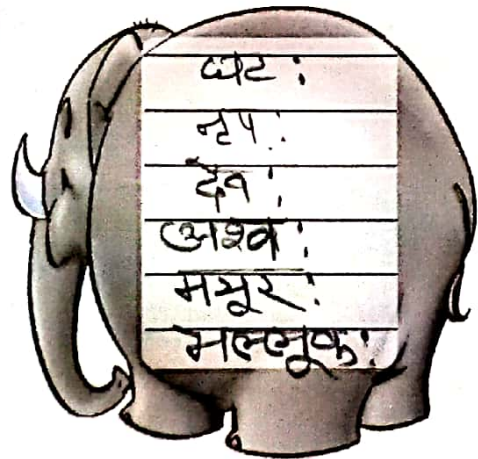 घट:
नृप:
देव:
अश्व:
मयूर:
मल्लूक: